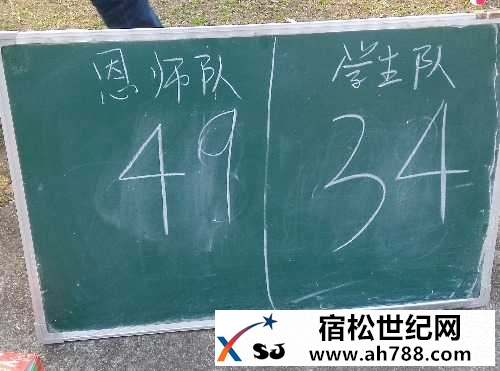 恩师队 学生队
49 34
XSJ 宿松世纪网
www.ah788.com